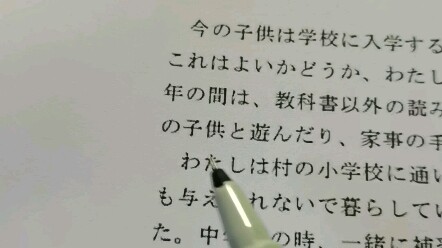 今の子供は学校に入学する
これはよいかどうか、わたし
年の間は、教科書以外の読み
の子供と遊んだり、家事の手
わたしは村の小学校に通い
も与えれないで暮らしてい
た。中の時、一緒に補